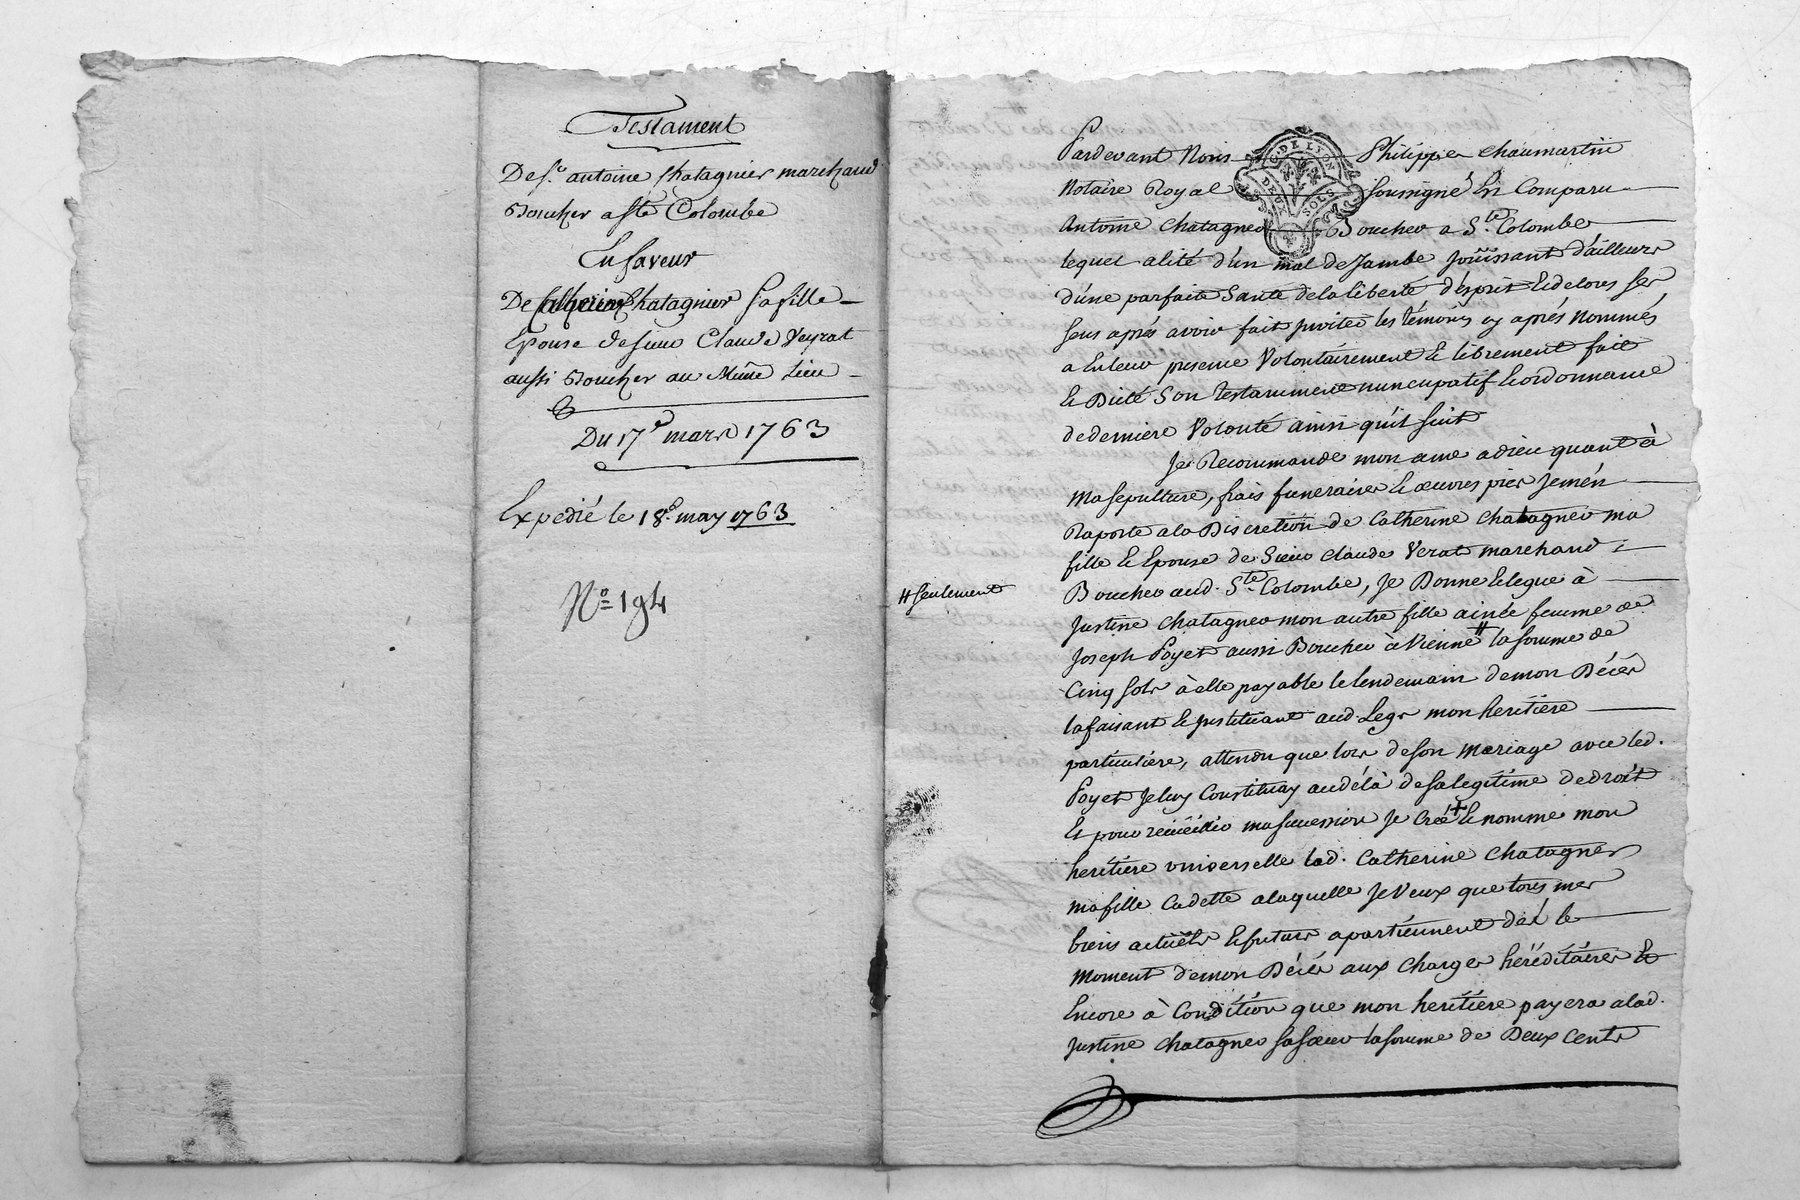 Testament
De sr. antoine Chatagnier marchand
Boucher a ste Colombe
En faveur
De Catherine Chatagnier sa fille
Epouse de sieur Claude Veyrat
aussi Boucher au Même Lieu
Du 17e mars 1763
Expedié le 18e. may 1763
No. 194
Pardevant Nous Philippe Chaumartin
Notaire Royal Soussigné En Comparu
G. DE LYON
DEUX SOLS
Antoine Chatagner Boucher a Ste. Colombe
lequel alité d'un mal de Jambe Joüissant d'ailleurs
d'une parfaite Santé de la liberté d'esprit Et de tous ses
sens aprés avoir fait inviter les témoins cy aprés Nommés
a En leur presence Volontairement Et librement fait
Et Dicté Son testament nuncupatif Et ordonnance
de derniere Volonté ainsi qu'il suit
Je Recommande mon ame a dieu quant à
Ma sepulture, frais funeraires Et œuvres pies Je m'en
Raporte a la Discretion de Catherine Chatagner ma
fille Et Epouse de Sieur Claude Verat marchand
Boucher aud. Ste. Colombe, Je Donne Et legue à
Justine Chatagner mon autre fille ainée femme de
Joseph Poyet aussi Boucher à Vienne # la somme de
# seulement
Cinq sols à elle payable le lendemain de mon Décés
la faisant Et Instituant aud. Legs mon heritiere
particuliere, attendu que lors de son Mariage avec led.
Poyet Je luy Constituay au délà de sa legitime de droit
Et pour recüeillir ma succession Je Crée + Et nomme mon
heritiere universelle lad. Catherine Chatagner
ma fille Cadette a laquelle Je Veux que tous mes
biens actuels Et futurs apartiennent dés le
Moment de mon Décés aux Charges héréditaires Et
Encore à Condition que mon heritiere payera a lad.
Justine Chatagner sa sœur la somme de Deux Cents